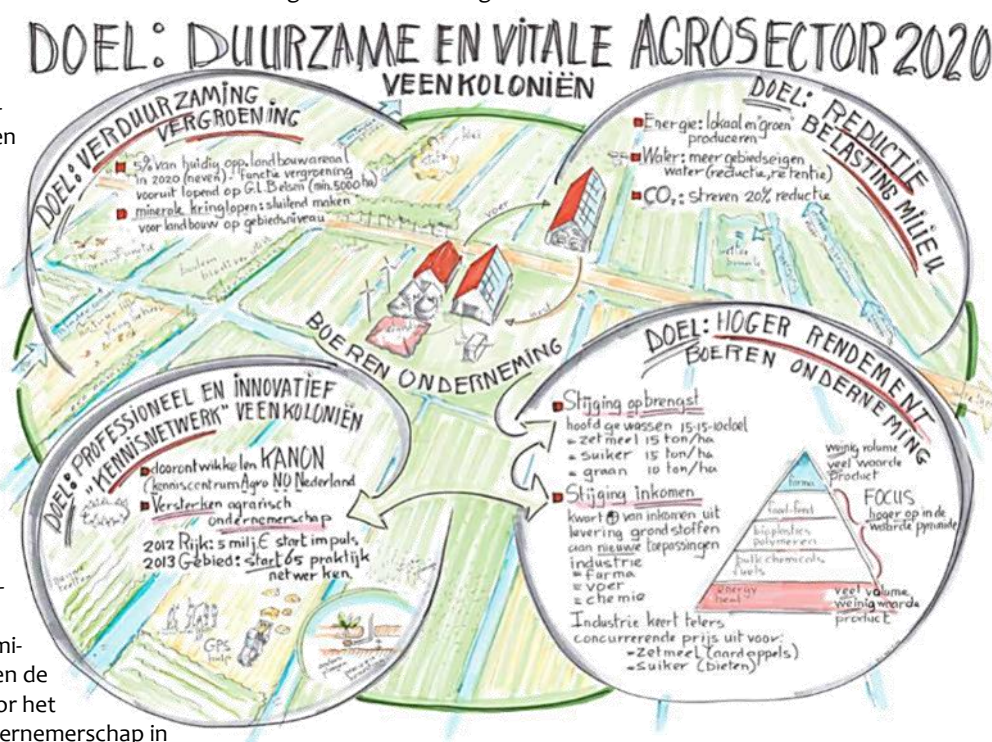 DOEL: DUURZAME EN VITALE AGROSECTOR 2020
VEENKOLONIËN
DOEL: VERDUURZAMING
VERGROENING
5% van huidig opp. landbouwareaal
in 2020 (neven)-functie vergroening
vooruit lopend op G.L.B eisen (min. 5000 ha)
minerale kringlopen: sluitend maken
voor landbouw op gebiedsniveau
DOEL: REDUCTIE
BELASTING MILIEU
Energie: lokaal en "groen"
produceren
Water: meer gebiedseigen
water (reductie, retentie)
CO₂: streven 20% reductie
voer
mest
BOEREN ONDERNEMING
DOEL: PROFESSIONEEL EN INNOVATIEF
"KENNISNETWERK" VEENKOLONIËN
doorontwikkelen KANON
(kenniscentrum Agro NO Nederland
Versterken agrarisch
ondernemerschap
2012 Rijk: 5 milj € start impuls,
2013 Gebied: start 65 praktijk
netwerken
GPS
DOEL: HOGER RENDEMENT
BOEREN ONDERNEMING
Stijging opbrengst
hoofd gewassen 15-15-10 doel
= zetmeel 15 ton/ha
= suiker 15 ton/ha
= graan 10 ton/ha
Stijging inkomen
kwart van inkomen uit
levering grondstoffen
aan nieuwe toepassingen
industrie
= farma
= voer
= chemie
Industrie keert telers
concurrerende prijs uit voor:
- zetmeel (aardappels)
- suiker (bieten)
weinig volume
veel waarde
product
farma
food-feed
bioplastics
polymeren
bulk chemicals
fuels
energy
heat
FOCUS
hoger op in de
waarde pyramide
veel volume
weinig waarde
product
en
en de
or het
dernemerschap in